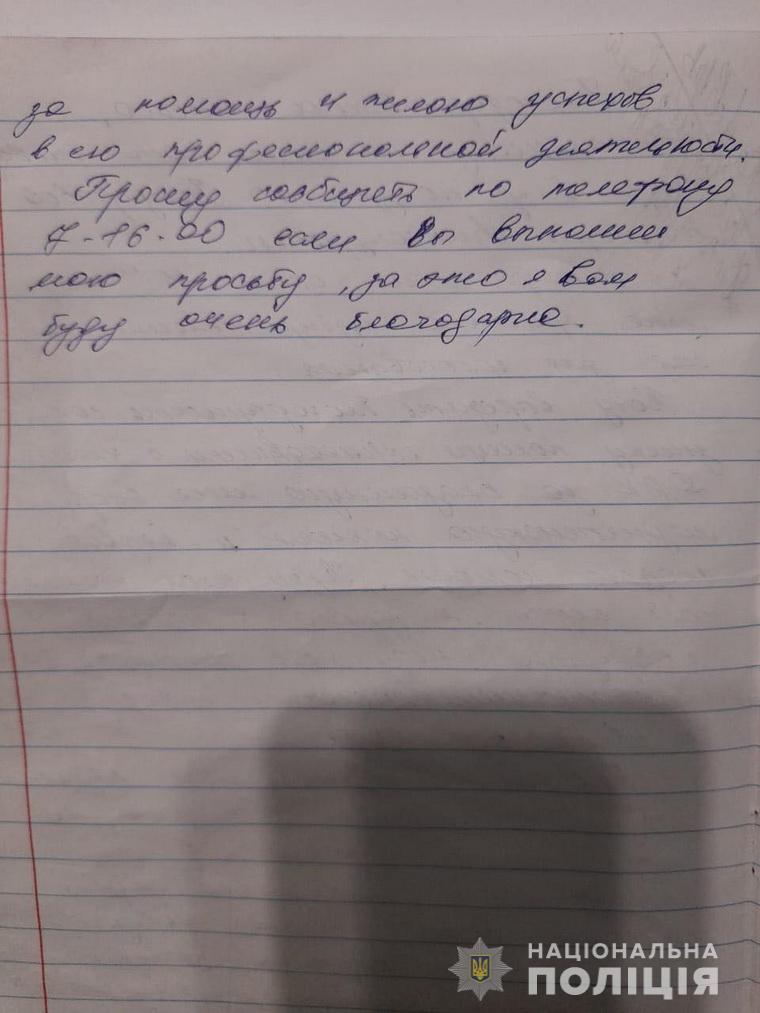 за помощь и желаю успехов
в его профессиональной деятельности.
Прошу сообщить по телефону
7-16-00 если Вы выполнили
мою просьбу, за это я Вам
буду очень благодарна.
НАЦІОНАЛЬНА
ПОЛІЦІЯ